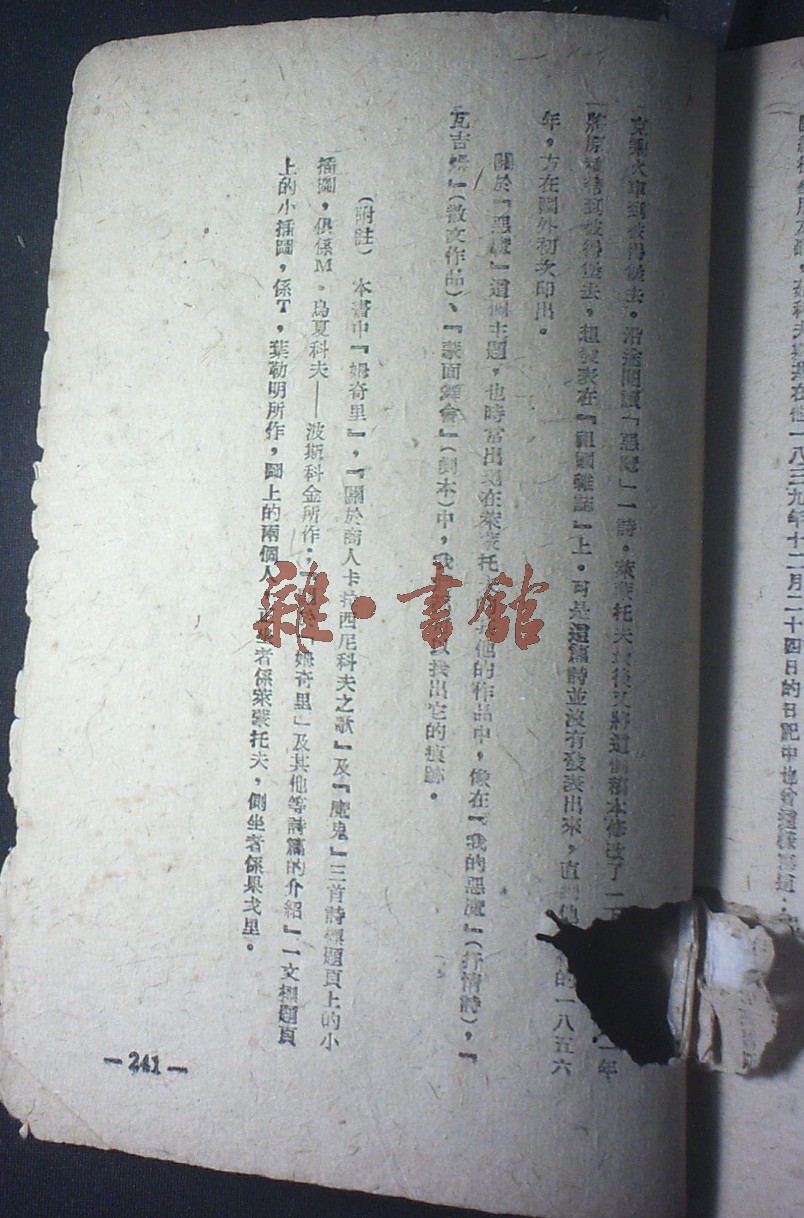 八三九年十二月二十四日的日記中也曾這樣寫過
車到彼得堡去。沿途閱讀『惡魔』一詩。萊蒙托夫最後又將這個稿本修改了一
年
將原稿帶到彼得堡去,想發表在『祖國雜誌』上。可是這篇詩並沒有發表出來,直到他 的一八五六
年,方在國外初次印出。
關於『惡魔』這個主題,也時常出現在萊蒙托夫 他的作品中,像在『我的惡魔』(抒情詩),『
瓦吉 』(散文作品)、『蒙面舞會』(劇本)中,我 找出它的痕跡。
(附註) 本書中『姆奇里』,『關於商人卡拉西尼科夫之歌』及『魔鬼』三首詩標題頁上的小
插圖,俱係M。烏夏科夫——波斯科金所作; 姆奇里」及其他等詩篇的介紹』一文標題頁
上的小插圖,係T,葉勒明所作,圖上的兩個人 坐者係萊蒙托夫,側坐者係果戈里。
—241—
雜·書館